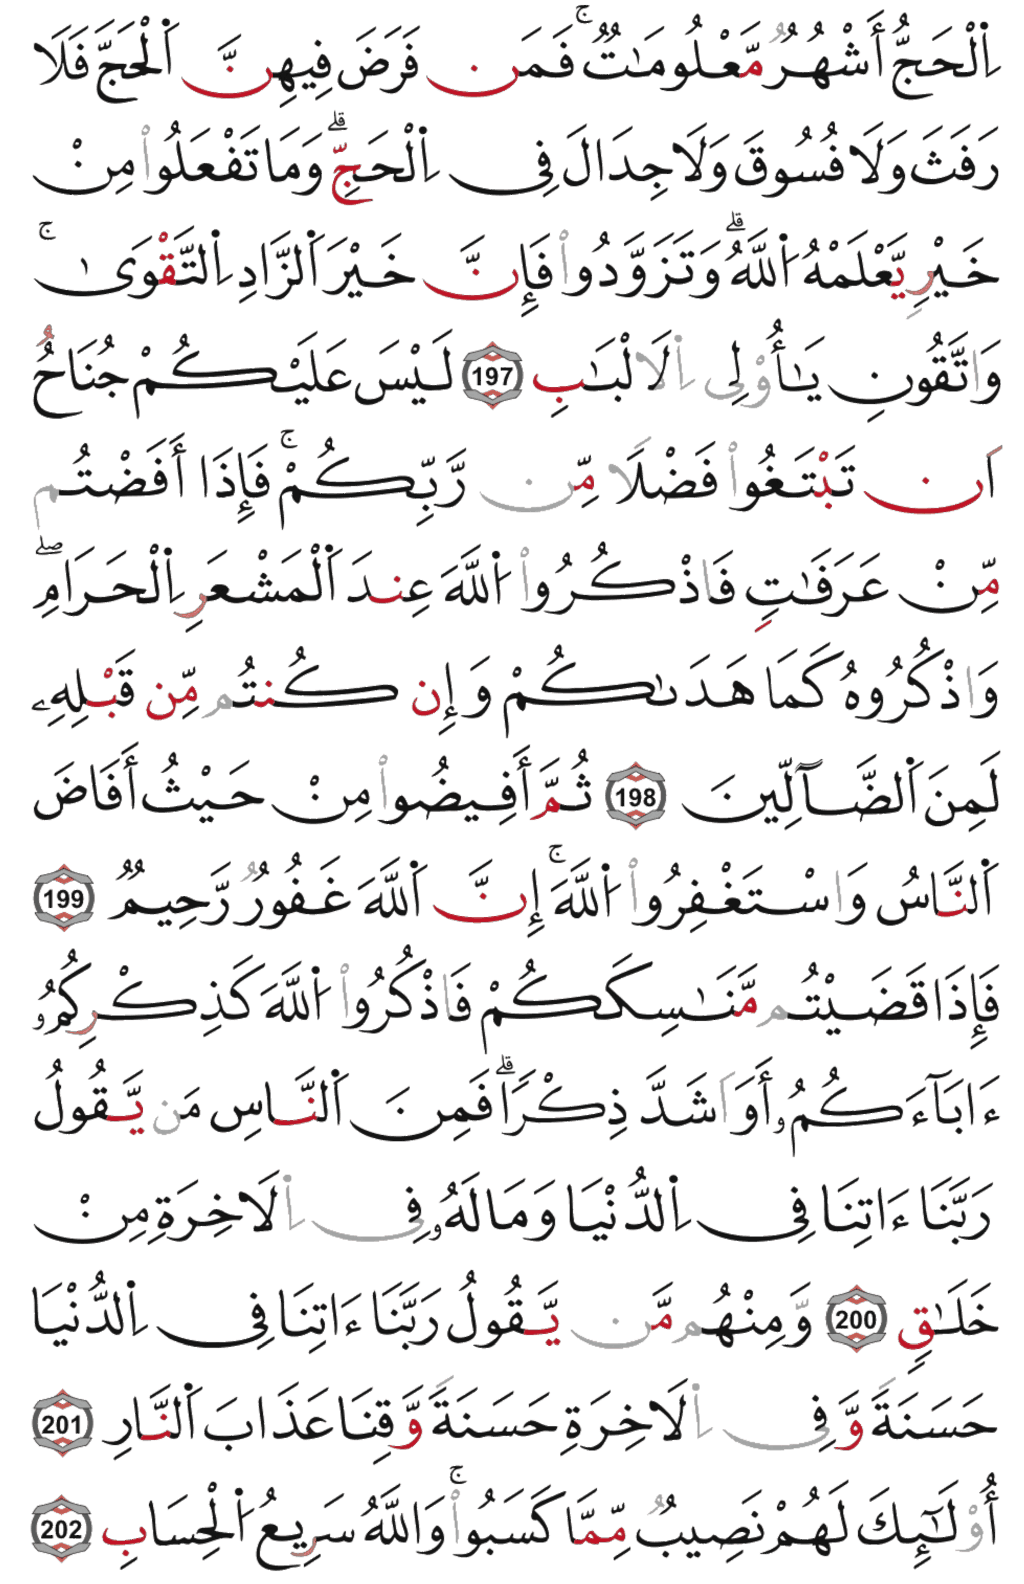 اِ۬لْحَجُّ أَشْهُرٞ مَّعْلُومَٰتٞۖ فَمَن فَرَضَ فِيهِنَّ اَ۬لْحَجَّ فَلَا
رَفَثَ وَلَا فُسُوقَ وَلَا جِدَالَ فِي اِ۬لْحَجِّۗ وَمَا تَفْعَلُواْ مِنْ
خَيْرٖ يَّعْلَمْهُ اُ۬للَّهُۗ وَتَزَوَّدُواْ فَإِنَّ خَيْرَ اَ۬لزَّادِ اِ۬لتَّقْوَىٰۚ
وَاتَّقُونِ يَٰأُوْلِي اِ۬لَالْبَٰبِ 197 لَيْسَ عَلَيْكُمْ جُنَاحٌ
اَن تَبْتَغُواْ فَضْلاٗ مِّن رَّبِّكُمْۚ فَإِذَا أَفَضْتُم
مِّنْ عَرَفَٰتٖ فَاذْكُرُواْ اُ۬للَّهَ عِندَ اَ۬لْمَشْعَرِ اِ۬لْحَرَامِۖ
وَاذْكُرُوهُ كَمَا هَدَىٰكُمْ وَإِن كُنتُم مِّن قَبْلِهِۦ
لَمِنَ اَ۬لضَّآلِّينَ 198 ثُمَّ أَفِيضُواْ مِنْ حَيْثُ أَفَاضَ
اَ۬لنَّاسُ وَاسْتَغْفِرُواْ اُ۬للَّهَۚ إِنَّ اَ۬للَّهَ غَفُورٞ رَّحِيمٞ 199
فَإِذَا قَضَيْتُم مَّنَٰسِكَكُمْ فَاذْكُرُواْ اُ۬للَّهَ كَذِكْرِكُمُۥ
ءَابَآءَكُمُۥ أَوَ اَشَدَّ ذِكْراٗۗ فَمِنَ اَ۬لنَّاسِ مَن يَّقُولُ
رَبَّنَا ءَاتِنَا فِي اِ۬لدُّنْيَا وَمَا لَهُۥ فِي اِ۬لَاخِرَةِ مِنْ
خَلَٰقٖ 200 وَمِنْهُم مَّن يَّقُولُ رَبَّنَا ءَاتِنَا فِي اِ۬لدُّنْيَا
حَسَنَةٗ وَّفِي اِ۬لَاخِرَةِ حَسَنَةٗ وَّقِنَا عَذَابَ اَ۬لنَّارِ 201
أُوْلَٰٓئِكَ لَهُمْ نَصِيبٞ مِّمَّا كَسَبُواْۚ وَاللَّهُ سَرِيعُ اُ۬لْحِسَابِ 202